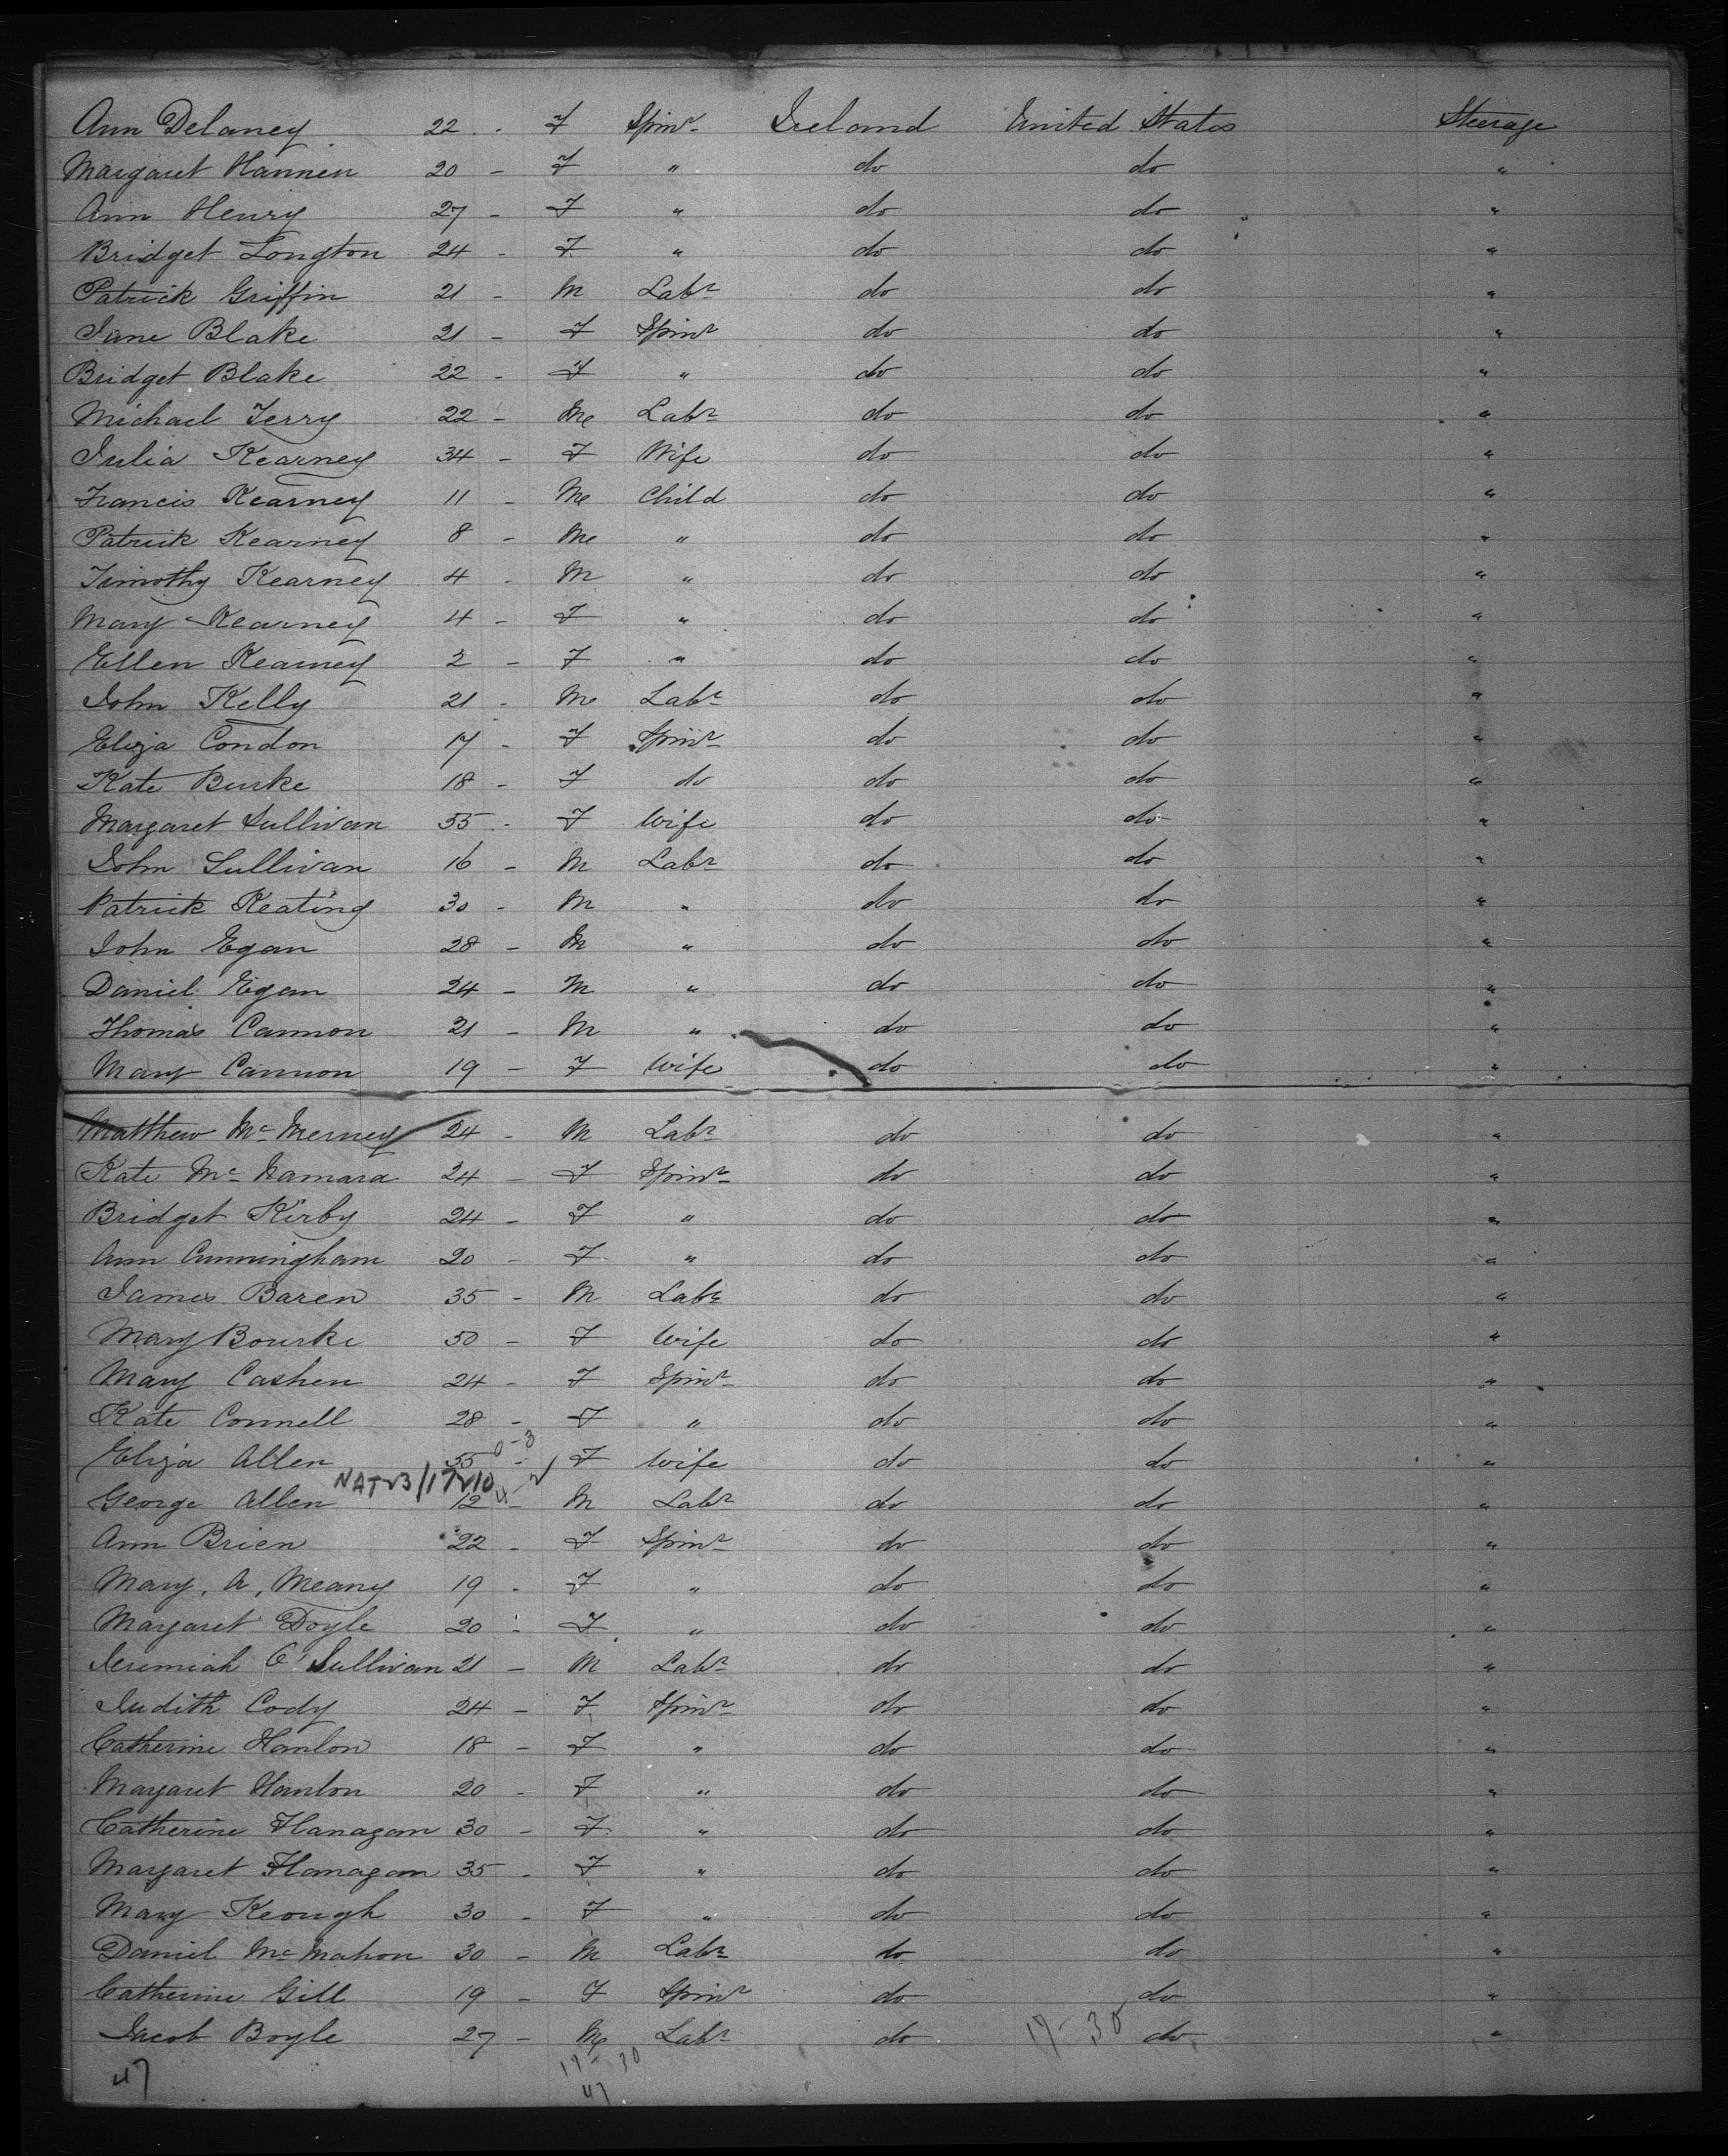 Ann Delaney 22 - F Spinr Ireland United States Steerage
Margaret Hannen 20 - F " do do "
Ann Henry 27 - F " do do "
Bridget Longton 24 - F " do do "
Patrick Griffin 21 - M Labr do do "
Jane Blake 21 - F Spinr do do "
Bridget Blake 22 - F " do do "
Michael Terry 22 - M Labr do do "
Julia Kearney 34 - F Wife do do "
Francis Kearney 11 - M Child do do "
Patrick Kearney 8 - M " do do "
Timothy Kearney 4 - M " do do "
Mary Kearney 4 - F " do do "
Ellen Kearney 2 - F " do do "
John Kelly 21 - M Labr do do "
Eliza Condon 17 - F Spinr do do "
Kate Burke 18 - F do do do "
Margaret Sullivan 55 - F Wife do do "
John Sullivan 16 - M Labr do do "
Patrick Keating 30 - M " do do "
John Egan 28 - M " do do "
Daniel Egan 24 - M " do do "
Thomas Cannon 21 - M " do do "
Mary Cannon 19 - F Wife do do "
Matthew Mc Merney 24 - M Labr do do "
Kate Mc Namara 24 - F Spinr do do "
Bridget Kirby 24 - F " do do "
Ann Cunningham 20 - F " do do "
James Baren 35 - M Labr do do "
Mary Bourke 50 - F Wife do do "
Mary Cashen 24 - F Spinr do do "
Kate Connell 28 - F " do do "
Eliza Allen 55 - F Wife do do "
George Allen 12 - M Labr do do "
Ann Brien 22 - F Spinr do do "
Mary, A, Meany 19 - F " do do "
Margaret Doyle 20 - F " do do "
Jeremiah O'Sullivan 21 - M Labr do do "
Judith Cody 24 - F Spinr do do "
Catherine Hanlon 18 - F " do do "
Margaret Hanlon 20 - F " do do "
Catherine Flanagan 30 - F " do do "
Margaret Flanagan 35 - F " do do "
Mary Keough 30 - F " do do "
Daniel McMahon 30 - M Labr do do "
Catherine Gill 19 - F Spinr do do "
Jacob Boyle 27 - M Labr do 17-30 do "
47 17-30
47